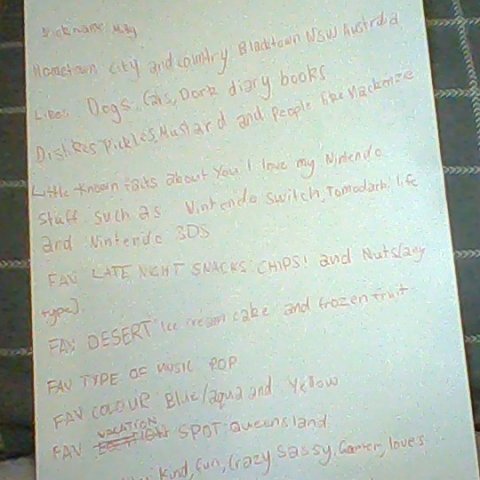 Nickname: 
Hometown city and country Blacktown NSW Australia
Likes: Dogs, Cats, Dork diary books
Dislikes Pickles, Mustard and People like Mackenzie
Little known facts about You I love my Nintendo
Stuff such as Nintendo Switch, Tomodachi life
and Nintendo 3DS
FAV LATE NIGHT SNACKS CHIPS! and Nuts[any
type].
FAV DESERT Ice cream cake and frozen fruit.
FAV TYPE OF MUSIC POP
FAV COLOUR Blue/aqua and Yellow
FAV VACATION SPOT: Queensland
Kind, Fun, Crazy Sassy, Gamer, loves